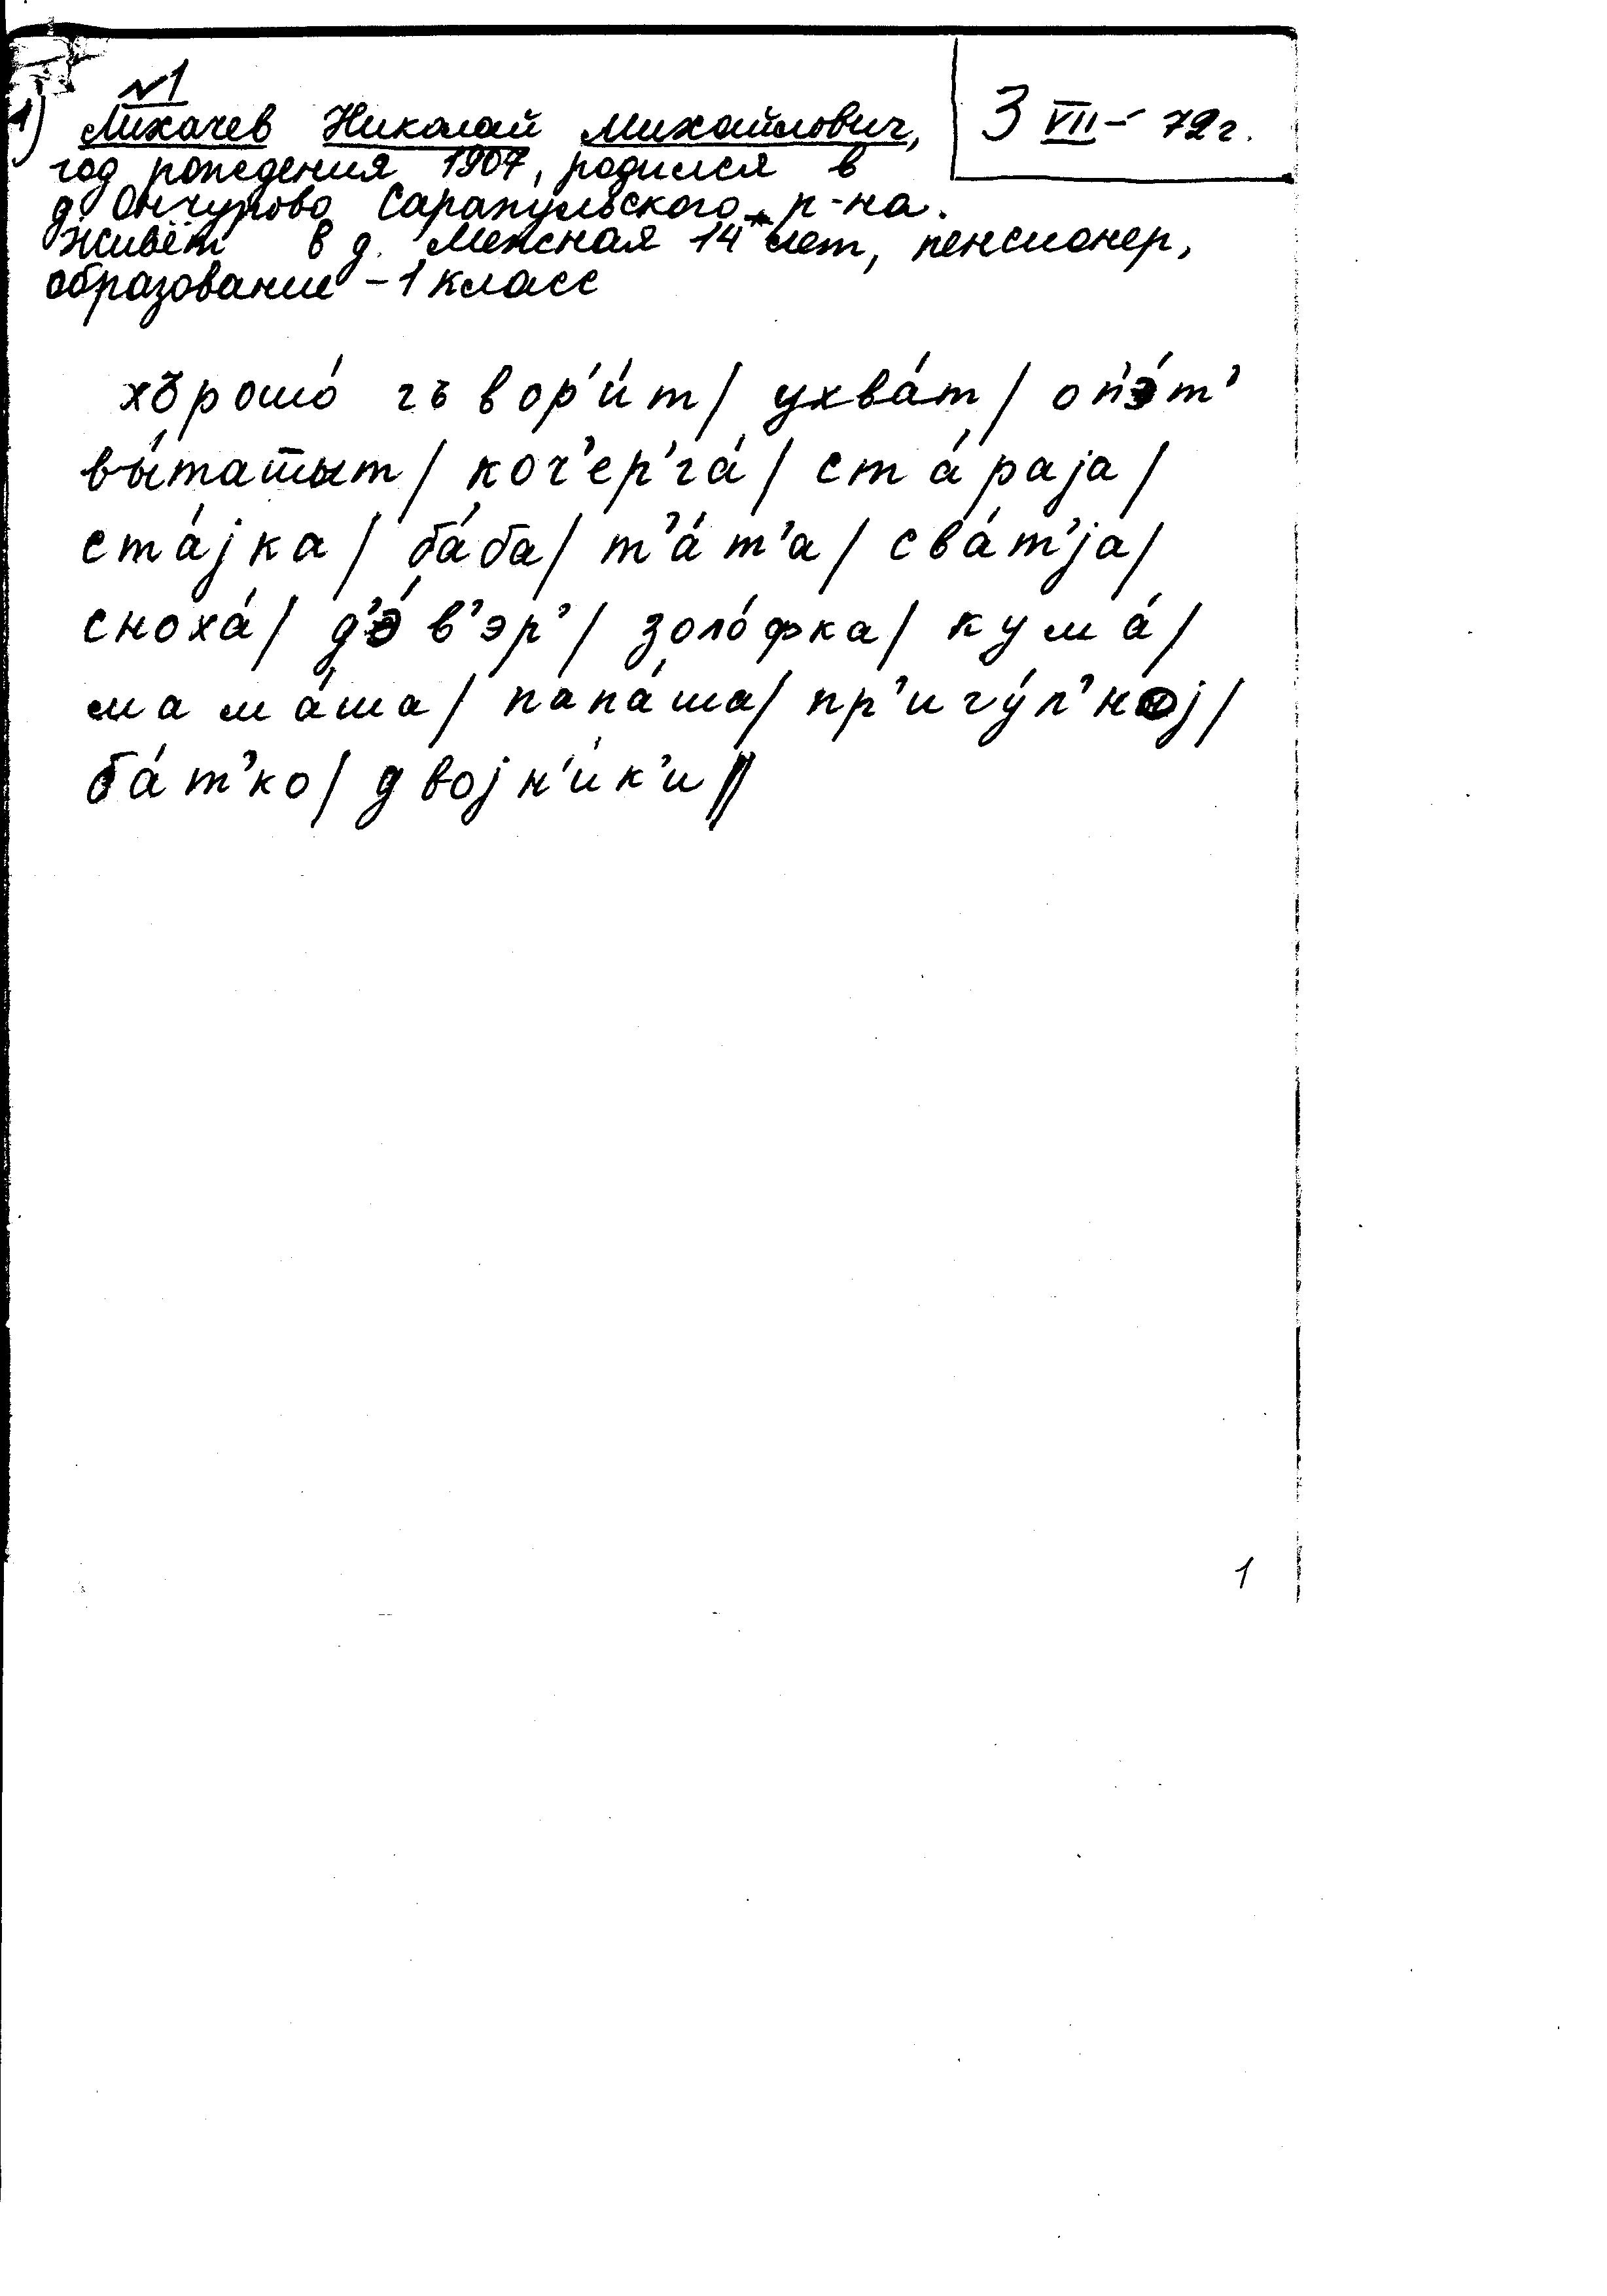 №1
3 VII – 72 г.
1) Лихачев Николай Михайлович,
год рождения 1907, родился в
д. Ончугово Сарапульского р-на.
Живёт в д. Межная 14 лет, пенсионер,
образование – 1 класс
хо̆рошо́ гъвор'и́т / ухва́т / оп'э́т'
вы́татыт / коч'ер'га́ / ста́раjа /
ста́jка / ба́ба / т'а́т'а / сва́т'jа /
сноха́ / д'э́в'эр' / золо́фка / кума́ /
мама́ша / папа́ша / пр'игу́л'ноj /
ба́т'ко / двоjн'и́к'и //
1